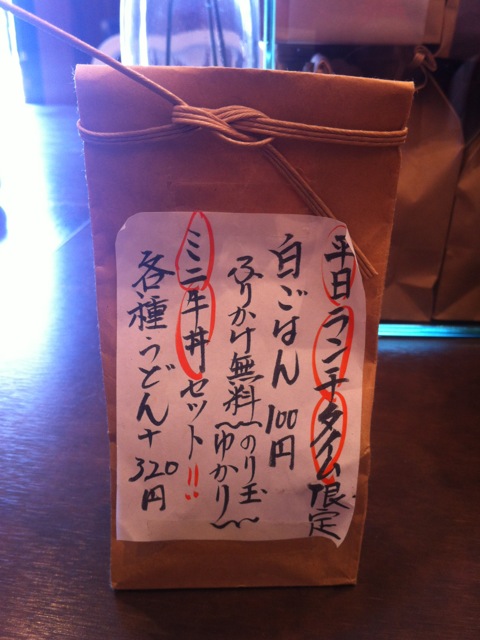 平日ランチタイム限定
白ごはん 100円
ふりかけ無料〜のり玉
ゆかり〜
ミニ牛丼セット!!
各種うどん+320円